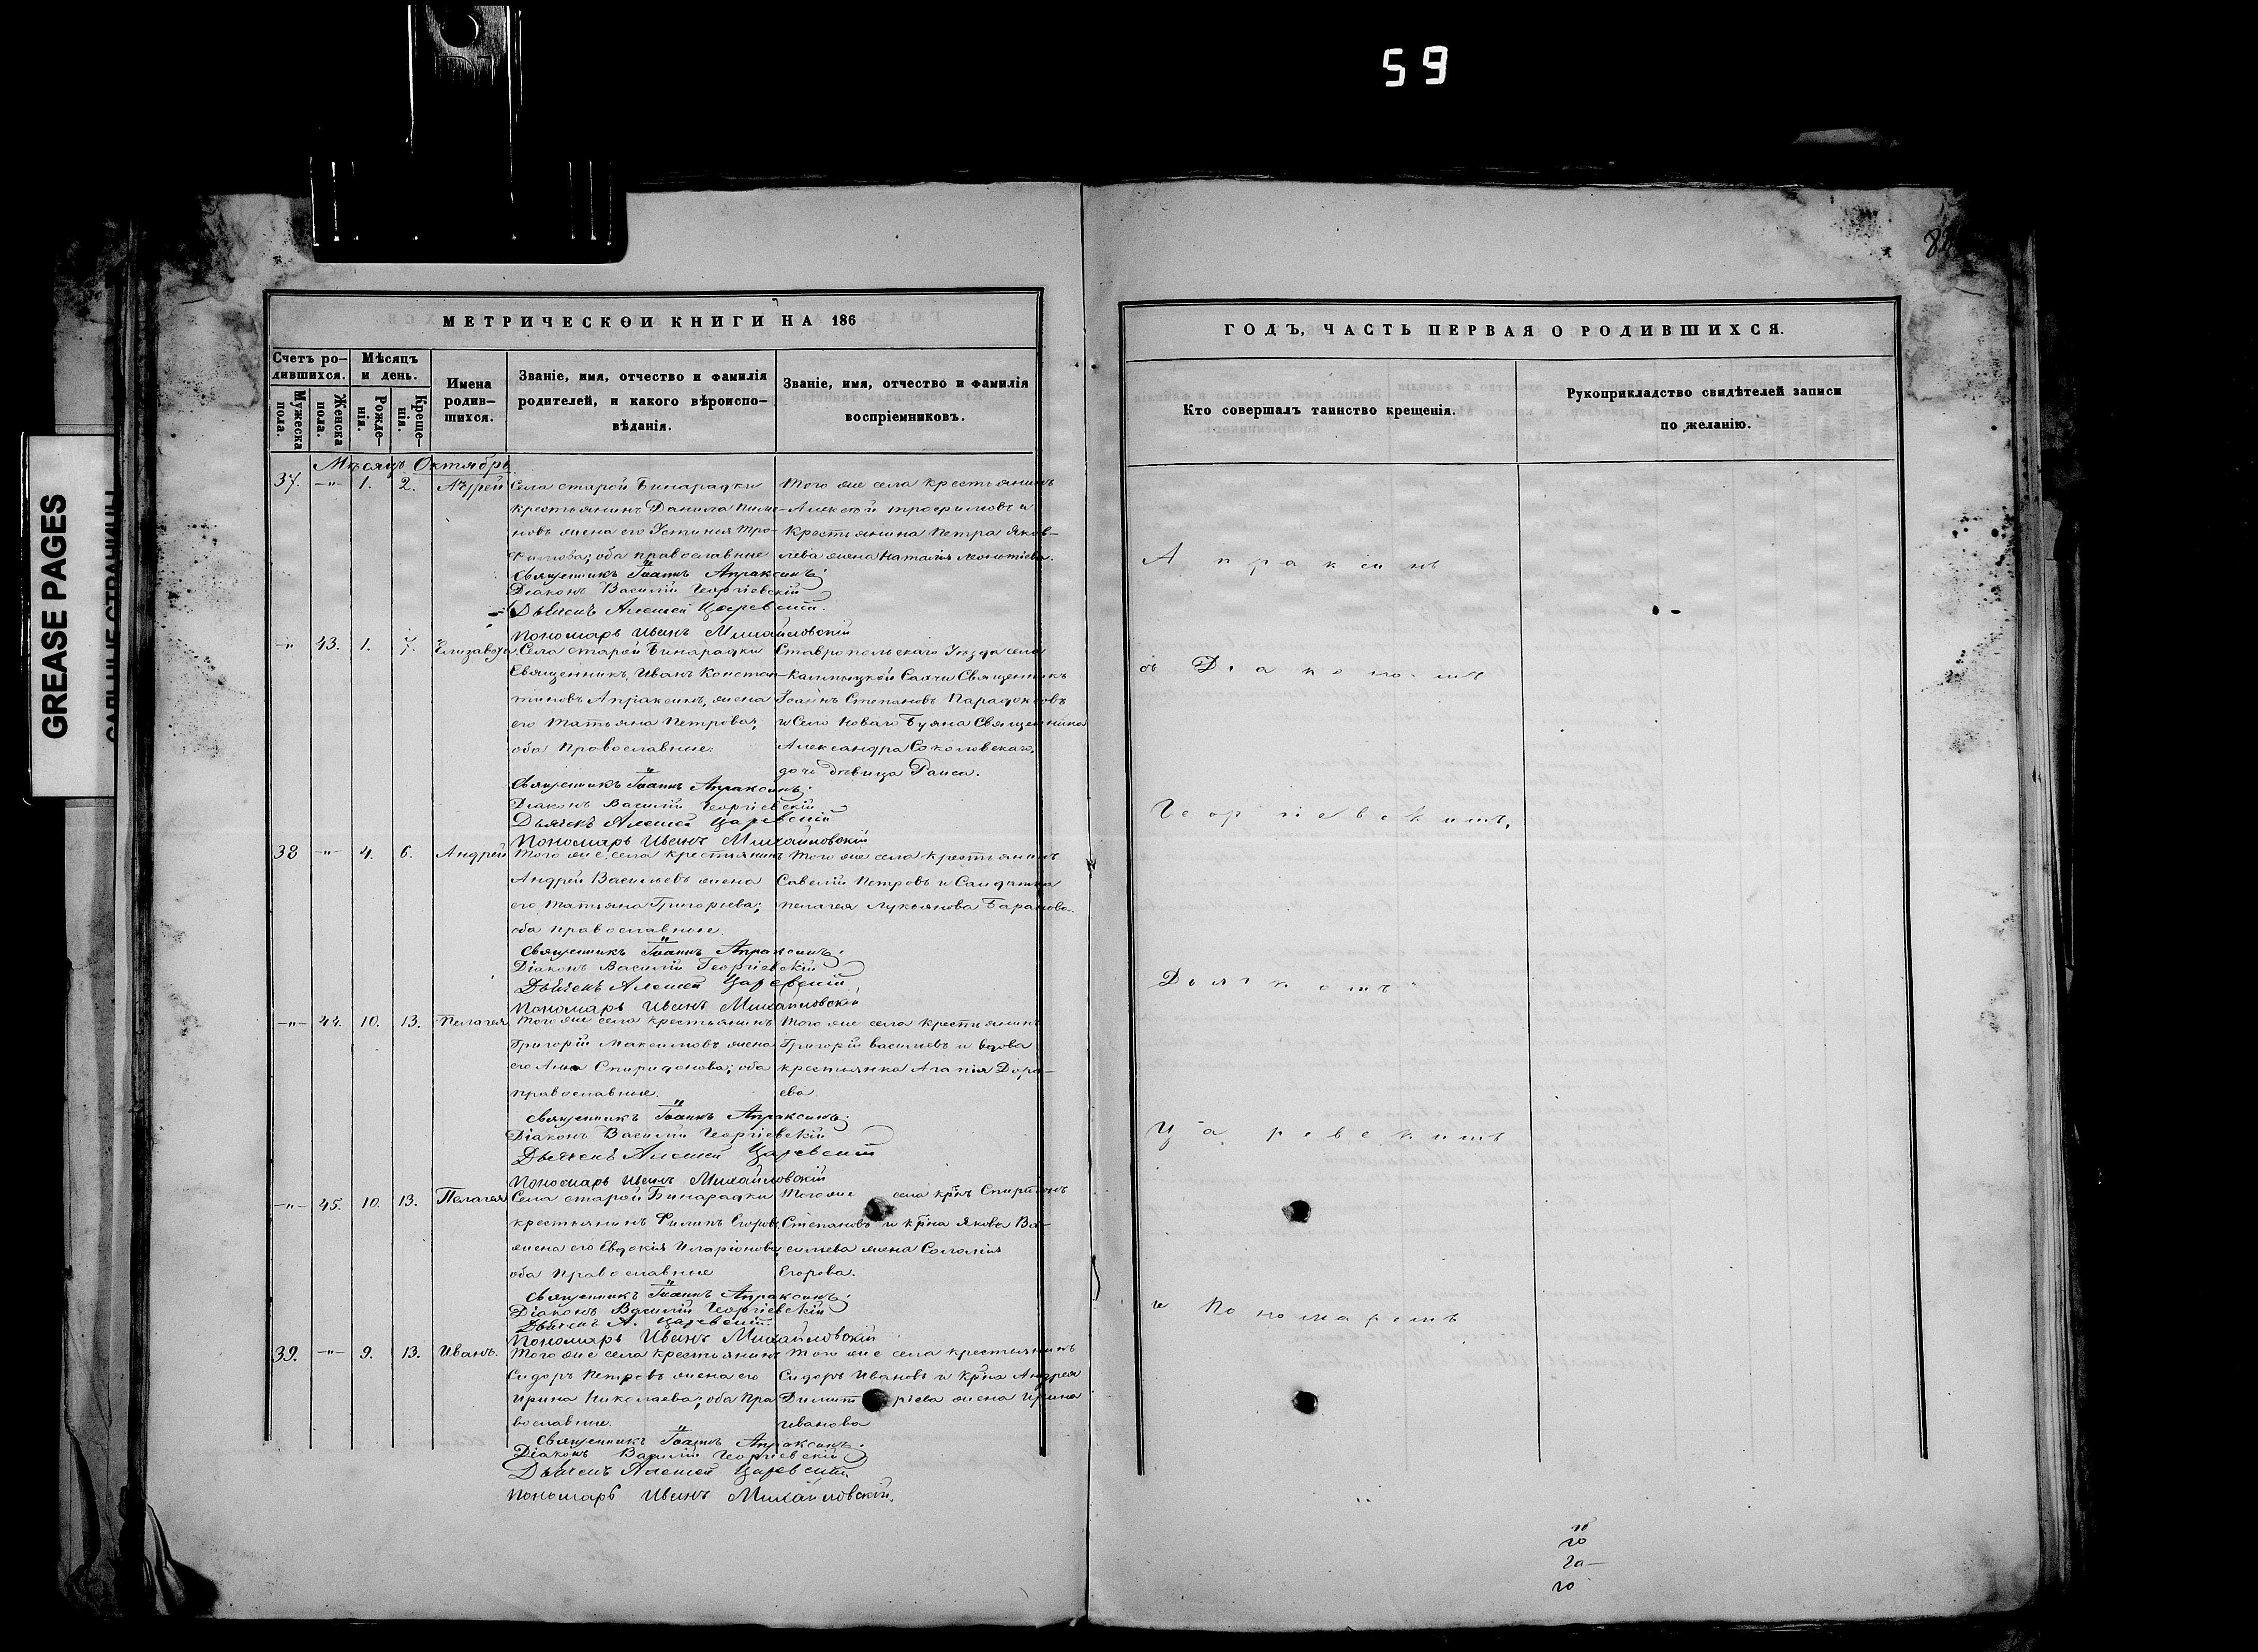 59
GREASE PAGES
МЕТРИЧЕСКОЙ КНИГИ НА 186
Счетъ ро-
дившихся.
Мѣсяцъ
и день.
Мужеска
пола.
Женска
пола.
Рожде-
нія.
Креще-
нія.
Имена
родив-
шихся.
Званіе, имя, отчество и фамилія
родителей, и какого вѣроиспо-
вѣданія.
Званіе, имя, отчество и фамилія
воспріемниковъ.
Мѣсяцъ Октябрь
37. -"- 1. 2.
Села старой Бинарадки
крестьянинъ Данила
новъ жена его Устинія Тро-
оба православные
Того же села крестьянинъ
Алексѣй Трофимовъ и
Крестьянина Петра Яков-
лева жена Наталія Леонтіева.
Священникъ Іоаннъ Апраксинъ
Діаконъ Василій Георгіевскій
Дьячекъ Алексей Царевскій.
Пономарь Иванъ Михайловскій
-"- 43. 1. 7. Елизавета
Села старой Бинарадки
Священникъ Иванъ Констан-
тиновъ Апраксинъ, жена
его Татьяна Петрова;
оба Православные.
Ставропольскаго Уѣзда села
Калмыцкой Сахчи Священникъ
Іоаннъ Степановъ Парадоксовъ
и Села Новаго Буяна Священника
Александра Соколовскаго,
дочь дѣвица Раиса.
Священникъ Іоаннъ Апраксинъ
Діаконъ Василій Георгіевскій
Дьячекъ Алексей Царевскій
Пономарь Иванъ Михайловскій
38 -"- 4. 6. Андрей
Того же села крестьянинъ
Андрей Васильевъ жена
его Татьяна Григорьева;
оба православные.
Того же села крестьянинъ
Савелій Петровъ и Солдатка
Пелагея Лукьянова Баранова.
Священникъ Іоаннъ Апраксинъ
Діаконъ Василій Георгіевскій
Дьячекъ Алексей Царевскій
Пономарь Иванъ Михайловскій
-"- 44. 10. 13. Пелагея
Того же села крестьянинъ
Григорій Максимовъ жена
его Анна Спиридонова; оба
православные.
Того же села крестьянинъ
Григорій Васильевъ и вдова
крестьянка Агапія Доро-
ева
Священникъ Іоаннъ Апраксинъ
Діаконъ Василій Георгіевскій
Дьячекъ Алексей Царевскій
Пономарь Иванъ Михайловскій
-"- 45. 10. 13. Пелагея
Села старой Бинарадки
крестьянинъ Филипъ Егоровъ
жена его Евдокія Иларіонова
оба Православные
Того же села крнъ Спиридонъ
Степановъ и крна Якова Ва-
сильева жена Соломія
Егорова.
Священникъ Іоаннъ Апраксинъ
Діаконъ Василій Георгіевскій
Дьячекъ А. Царевскій.
Пономарь Иванъ Михайловскій
39. -"- 9. 13. Иванъ.
Того же села крестьянинъ
Сидоръ Петровъ жена его
Ирина Николаева; оба Пра
вославные.
Того же села крестьянинъ
Сидоръ Ивановъ и крна Андрея
Димитріева жена Ирина
Иванова
Священникъ Іоаннъ Апраксинъ
Діаконъ Василій Георгіевскій
Дьячекъ Алексей Царевскій
Пономарь Иванъ Михайловскій.
ГОДЪ, ЧАСТЬ ПЕРВАЯ О РОДИВШИХСЯ.
Кто совершалъ таинство крещенія.
Рукоприкладство свидѣтелей записи
по желанію.
Апраксинъ
съ Діакономъ
Георгіевскимъ,
Дьячкомъ
Царевскимъ
и Пономаремъ